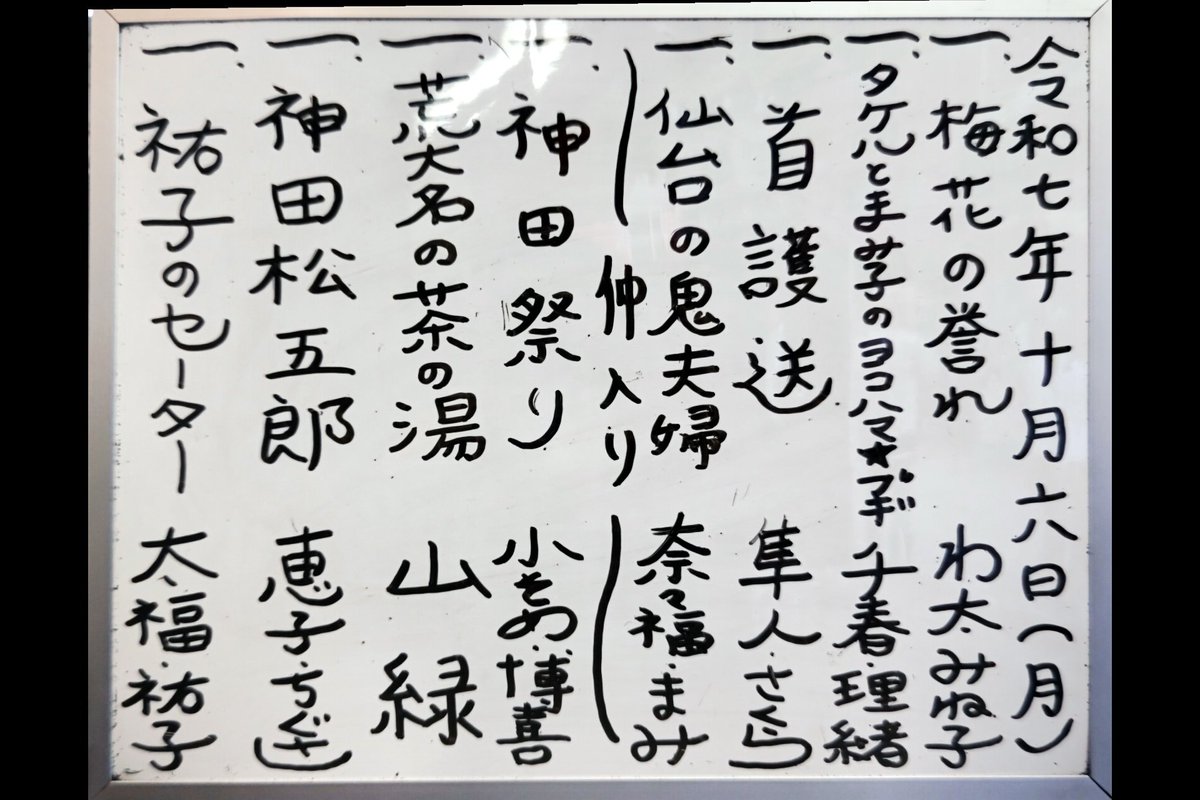 令和七年十月六日(月)
一、梅花の誉れ わ太・みね子
一、タケルとまみ子のヨコハマ★ブギ 千春・理緒
一、首護送 隼人・さくら
一、仙台の鬼夫婦 奈々福・まみ
仲入り
一、神田祭り 小そめ・博喜
一、荒大名の茶の湯 山緑
一、神田松五郎 恵子・ちぐさ
一、祐子のセーター 太福・祐子